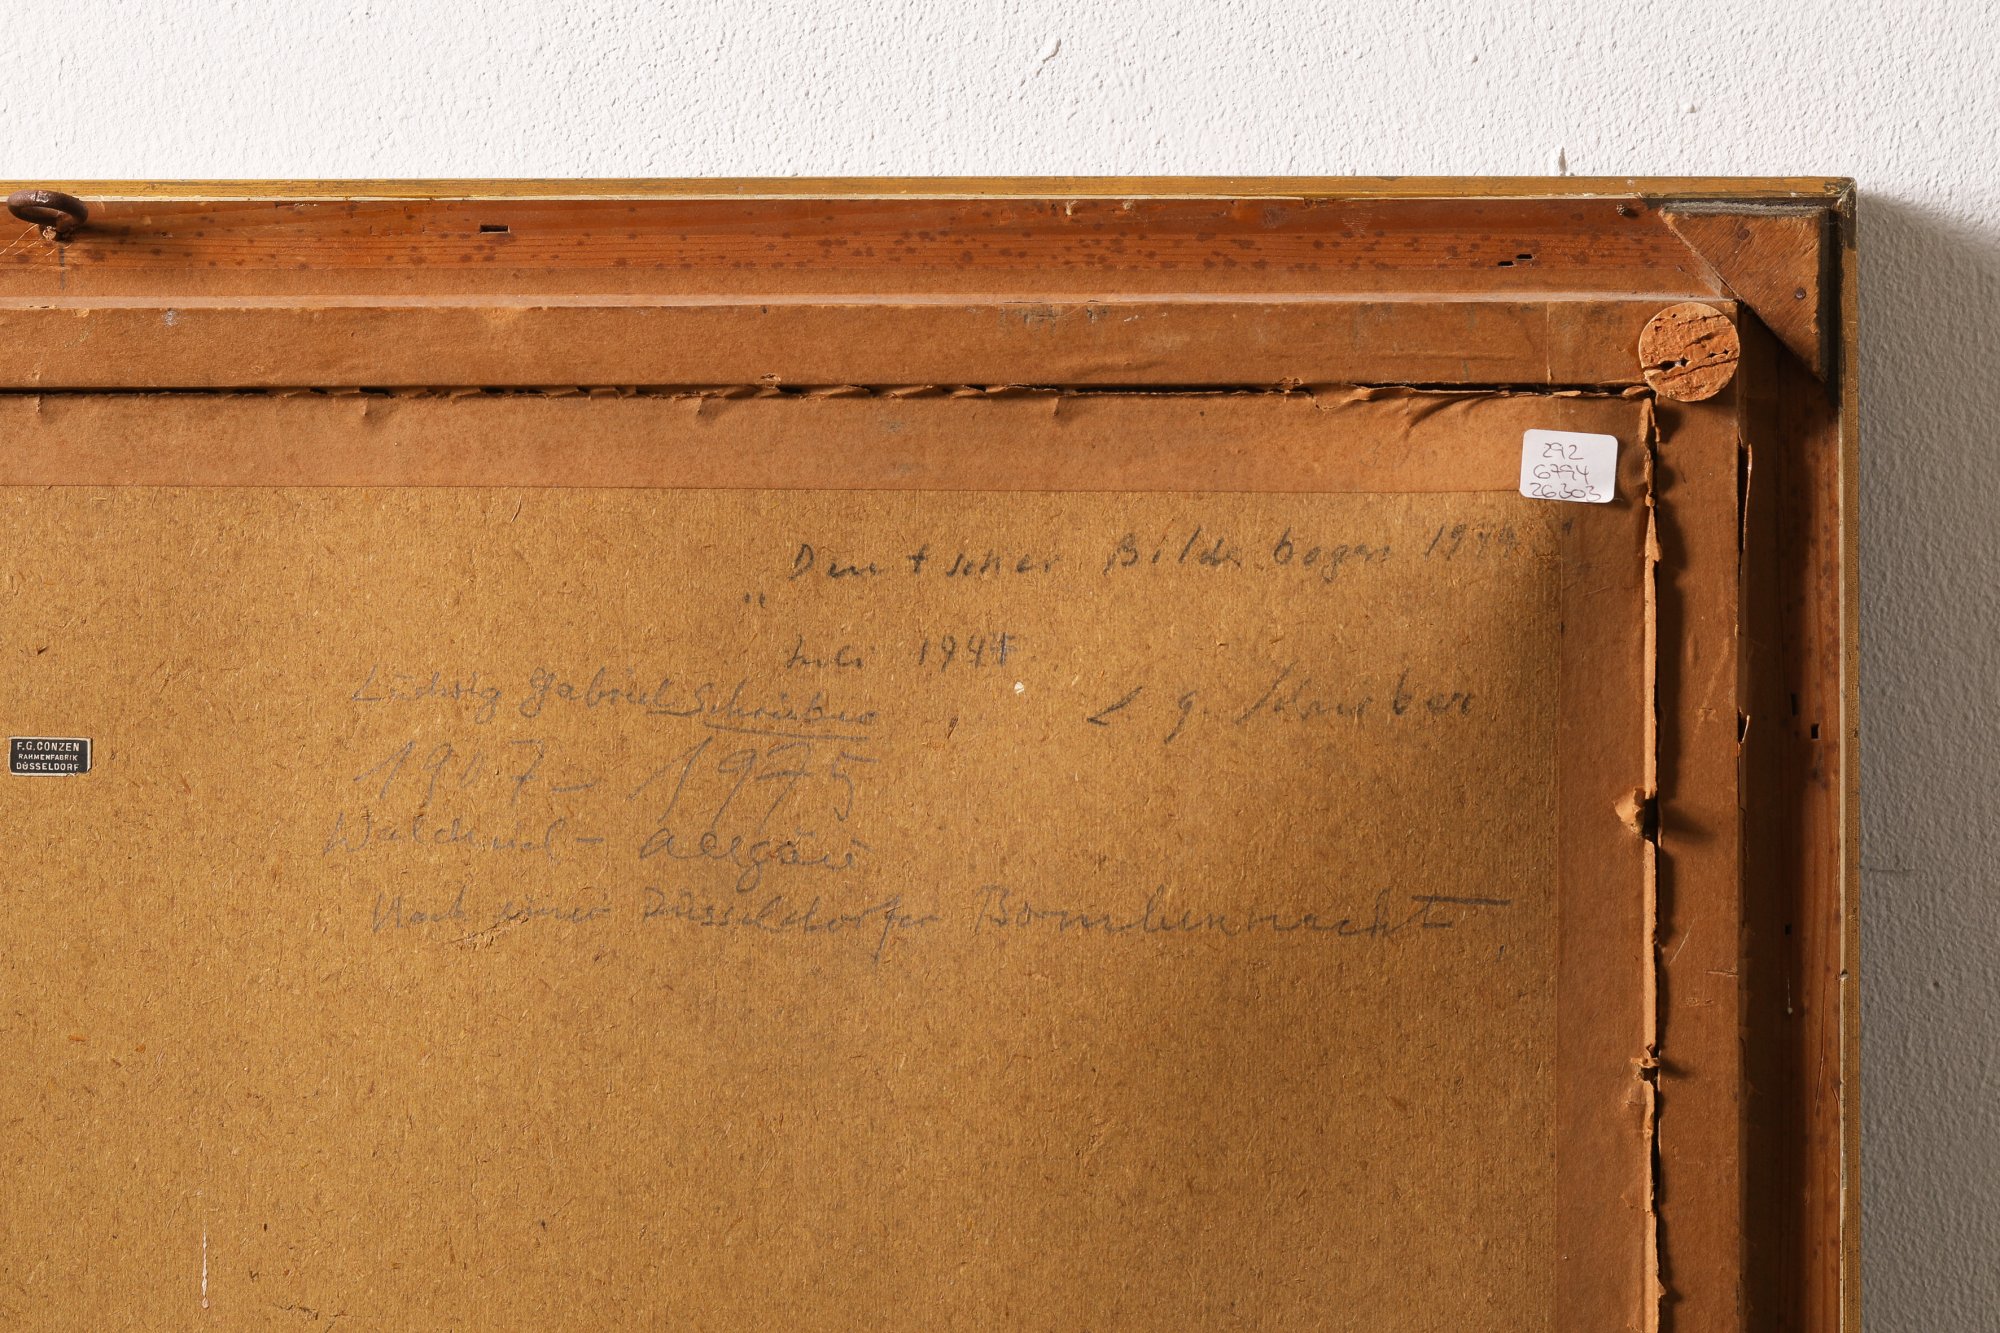 292
6794
26303
„Deutscher Bilderbogen 1944"
Juli 1944
L. G. Schreiber
Ludwig Gabriel Schrieber
1907 – 1975
Allgäu
Nach einer Düsseldorfer Bombennacht
F.G. CONZEN
RAHMENFABRIK
DÜSSELDORF